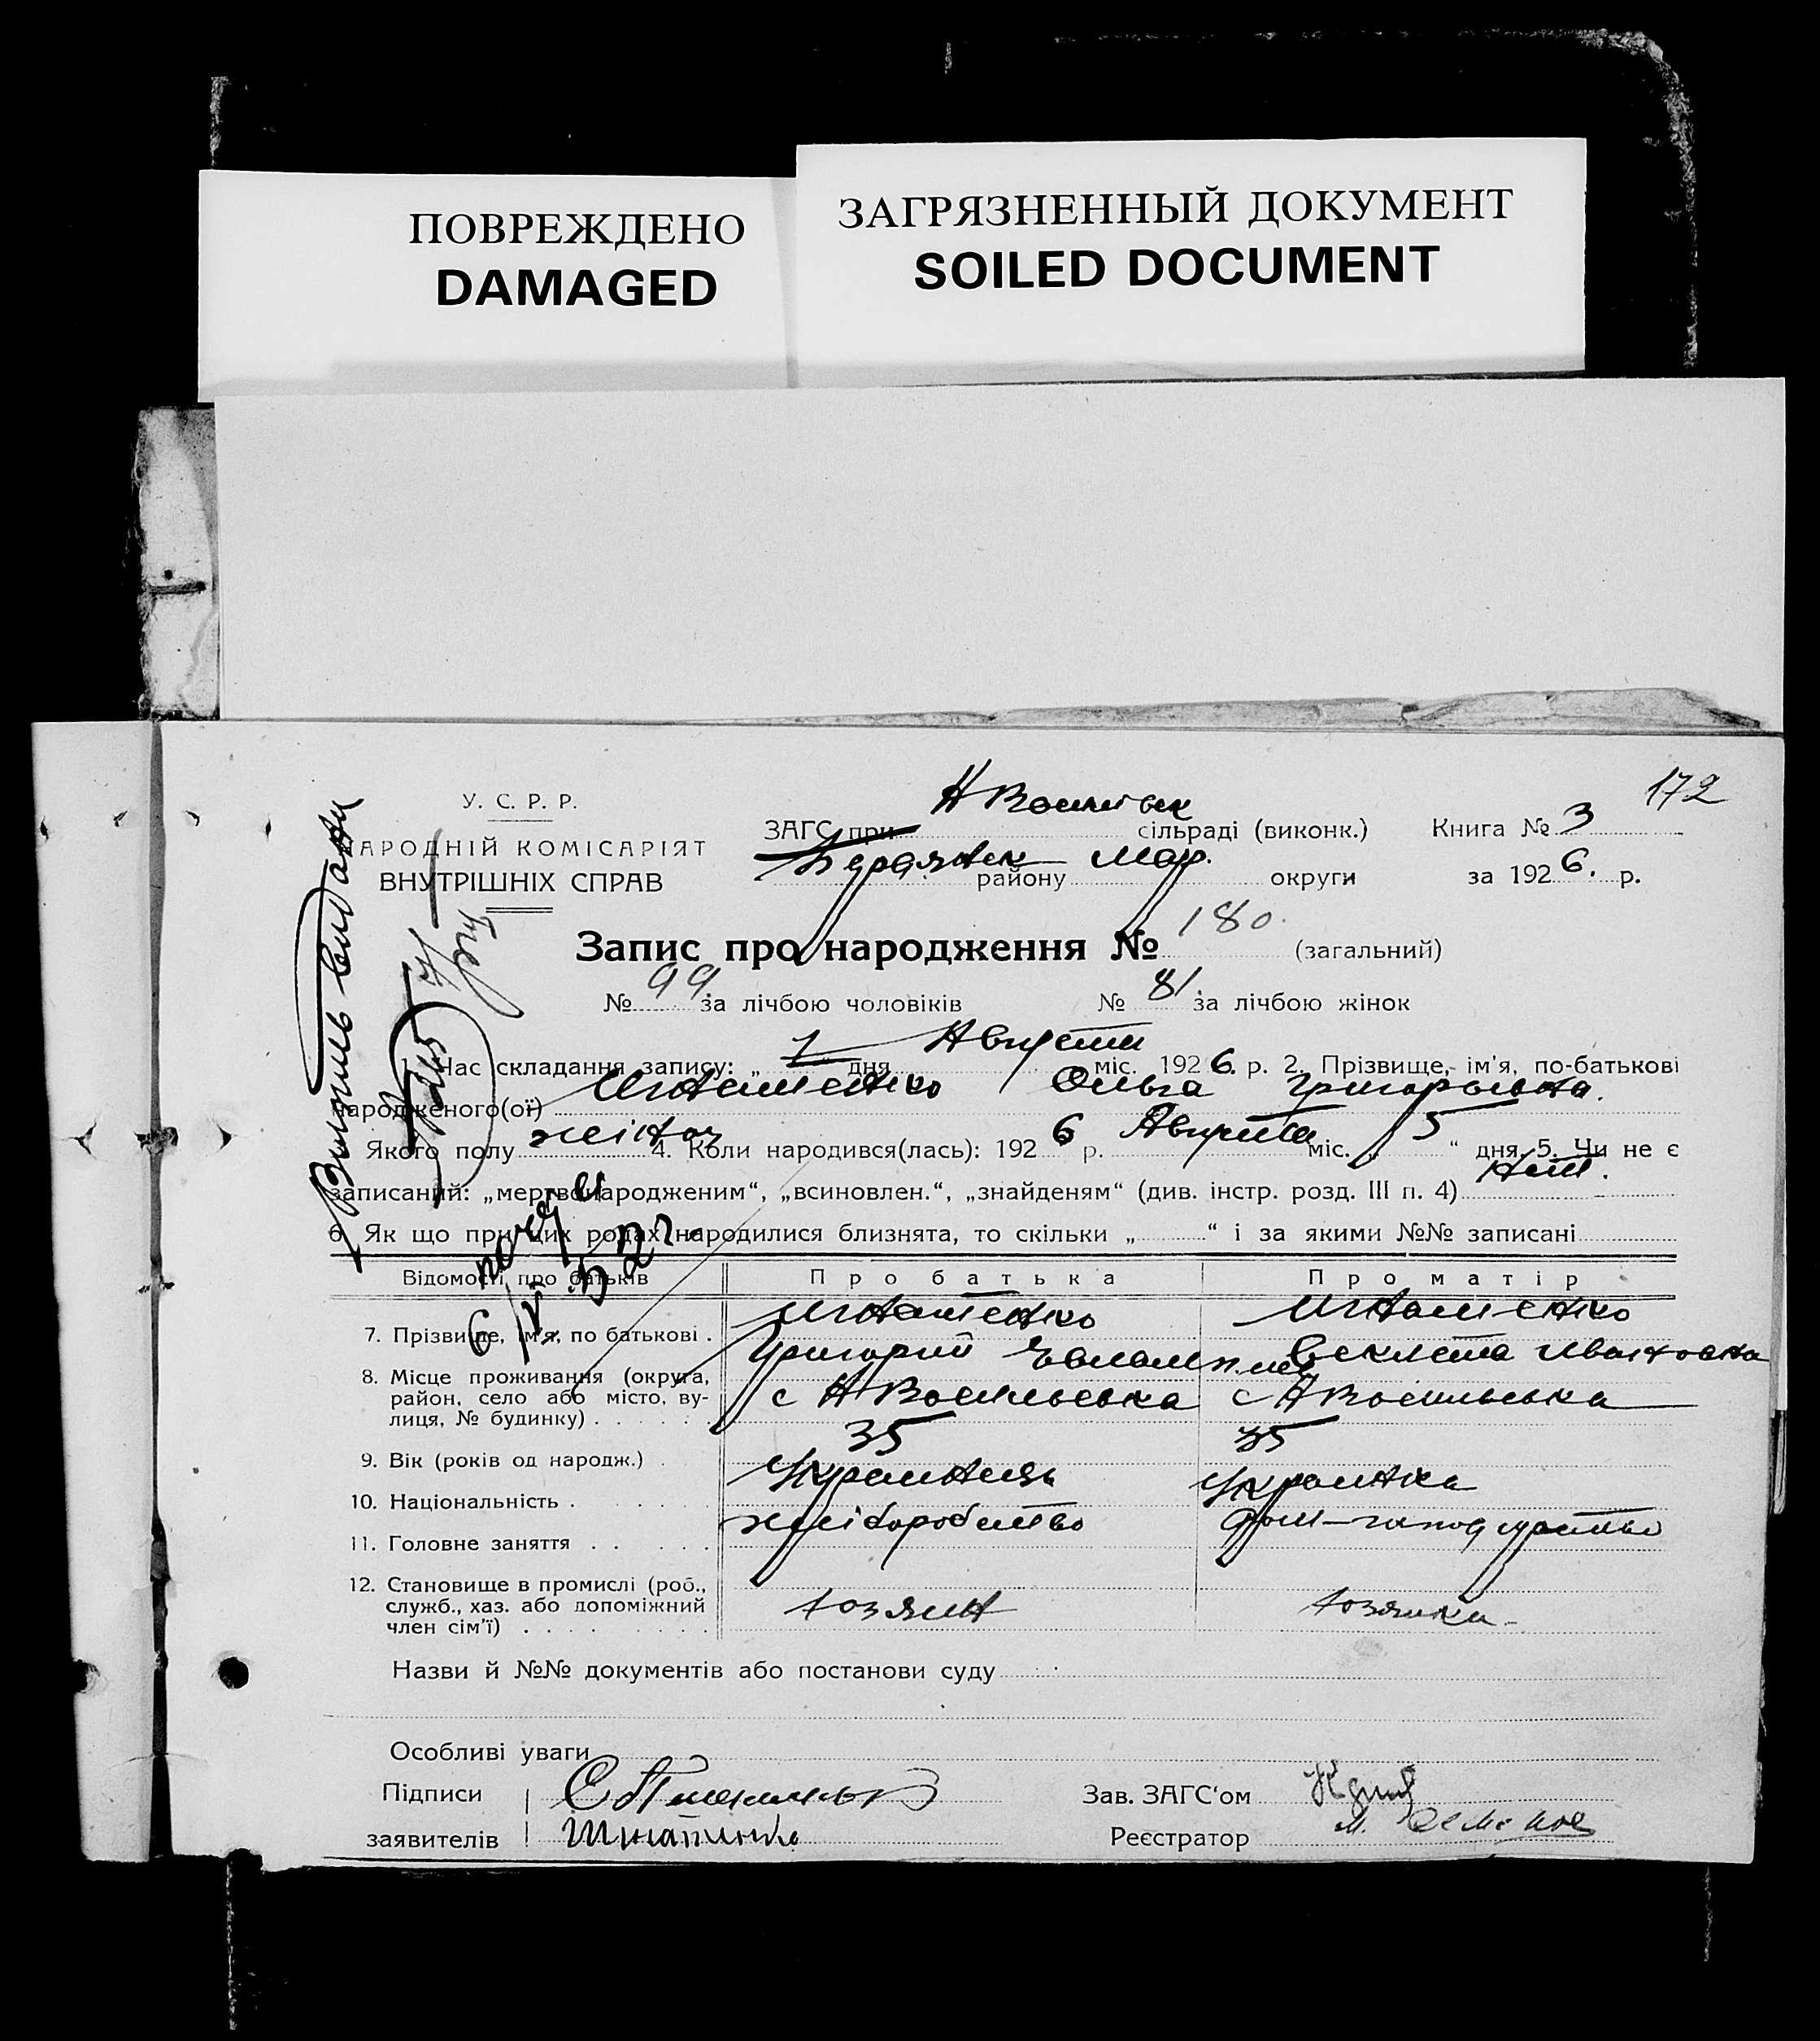 ПОВРЕЖДЕНО
DAMAGED
ЗАГРЯЗНЕННЫЙ ДОКУМЕНТ
SOILED DOCUMENT
172
У. С. Р. Р.
НАРОДНІЙ КОМІСАРІЯТ
ВНУТРІШНІХ СПРАВ
ЗАГС при сільраді (виконк.)
району Мар. округи
Книга № 3
за 1926. р.
Запис про народження № 180. (загальний)
№ 99 за лічбою чоловіків № 81. за лічбою жінок
Час складання запису: „ дня Августа міс. 1926. р. 2. Прізвище, ім'я, по-батькові
народженого(ої) Игнатенко Ольга Григорьевна.
Якого полу жіноч 4. Коли народився(лась): 1926 р. Августа міс. „ 5 “ дня. 5. Чи не є
записаний: „мертвонародженим“, „всиновлен.“, „знайденям“ (див. інстр. розд. III п. 4) нет.
6. Як що при цих родах народилися близнята, то скільки „ “ і за якими №№ записані
Відомості про батьків Про батька Про матір
7. Прізвище, ім'я, по батькові . Игнатенко Григорий Игнатенко Ивановна
8. Місце проживання (округа, район, село або місто, вулиця, № будинку) . . . . . . с Н Васильевка с Н Васильевка
9. Вік (років од народж.) . 35 35
10. Національність . . . . . . Украинець Украинка
11. Головне заняття . . . . . хліборобство
12. Становище в промислі (роб., служб., хаз. або допоміжний член сім'ї) . . . . . . . . хозяин хозяйка
Назви й №№ документів або постанови суду
Особливі уваги
Підписи
заявителів
Зав. ЗАГС'ом
Реєстратор